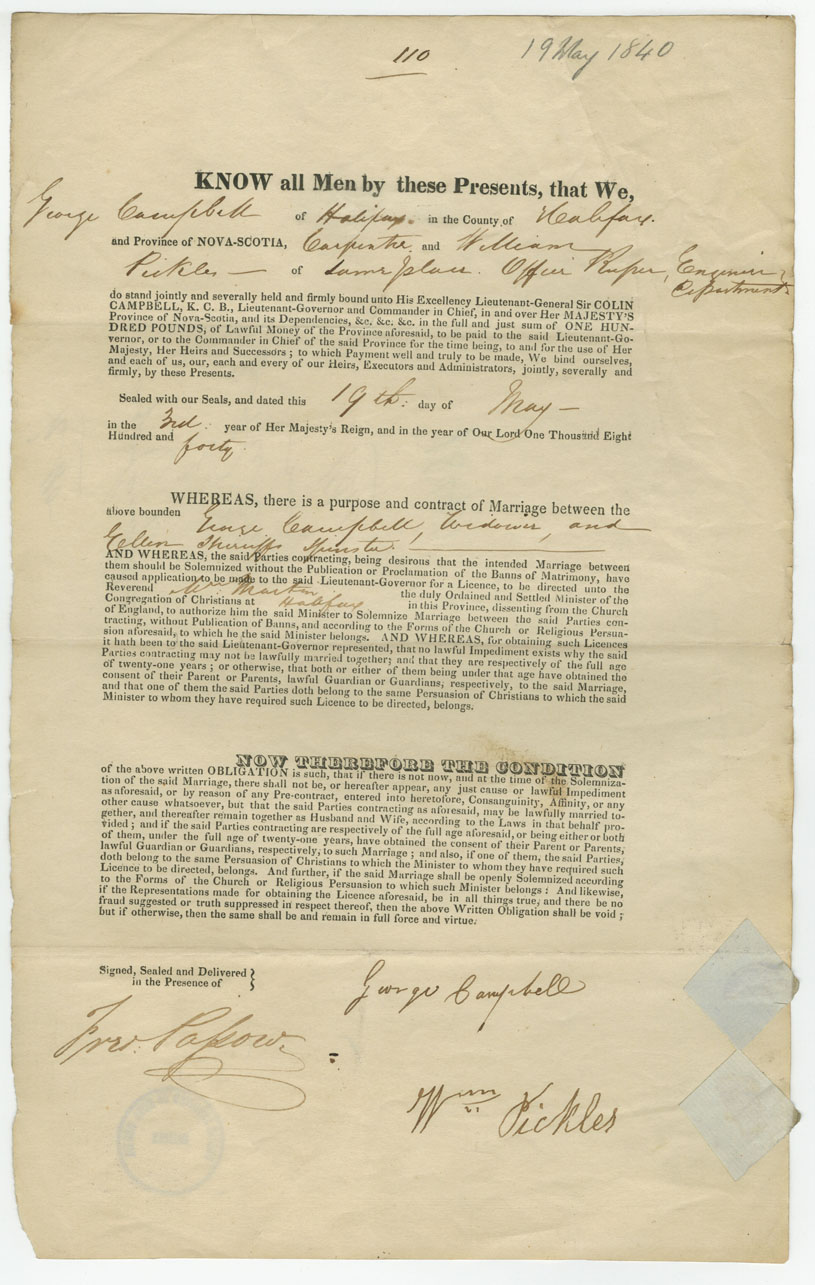 110
19 May 1840
KNOW all Men by these Presents, that We,
George Campbell of Halifax in the County of Halifax.
and Province of NOVA-SCOTIA, Carpenter and William
Pickles — of same place. Office Keeper, Engineer
Department
do stand jointly and severally held and firmly bound unto His Excellency Lieutenant-General Sir COLIN
CAMPBELL, K. C. B., Lieutenant-Governor and Commander in Chief, in and over Her MAJESTY'S
Province of Nova-Scotia, and its Dependencies, &c. &c. &c. in the full and just sum of ONE HUN-
DRED POUNDS, of Lawful Money of the Province aforesaid, to be paid to the said Lieutenant-Go-
vernor, or to the Commander in Chief of the said Province for the time being, to and for the use of Her
Majesty, Her Heirs and Successors ; to which Payment well and truly to be made, We bind ourselves,
and each of us, our, each and every of our Heirs, Executors and Administrators, jointly, severally and
firmly, by these Presents.
Sealed with our Seals, and dated this 19th. day of May —
in the 3rd. year of Her Majesty's Reign, and in the year of Our Lord One Thousand Eight
Hundred and forty.
WHEREAS, there is a purpose and contract of Marriage between the
above bounden George Campbell, Widower, and
Ellen Sheriffs Spinster.
AND WHEREAS, the said Parties contracting, being desirous that the intended Marriage between
them should be Solemnized without the Publication or Proclamation of the Banns of Matrimony, have
caused application to be made to the said Lieutenant-Governor for a Licence, to be directed unto the
Reverend Mr. Martin the duly Ordained and Settled Minister of the
Congregation of Christians at Halifax in this Province, dissenting from the Church
of England, to authorize him the said Minister to Solemnize Marriage between the said Parties con-
tracting, without Publication of Banns, and according to the Forms of the Church or Religious Persua-
sion aforesaid, to which he the said Minister belongs. AND WHEREAS, for obtaining such Licences
it hath been to the said Lieutenant-Governor represented, that no lawful Impediment exists why the said
Parties contracting may not be lawfully married together; and that they are respectively of the full age
of twenty-one years ; or otherwise, that both or either of them being under that age have obtained the
consent of their Parent or Parents, lawful Guardian or Guardians, respectively, to the said Marriage,
and that one of them the said Parties doth belong to the same Persuasion of Christians to which the said
Minister to whom they have required such Licence to be directed, belongs.
NOW THEREFORE THE CONDITION
of the above written OBLIGATION is such, that if there is not now, and at the time of the Solemniza-
tion of the said Marriage, there shall not be, or hereafter appear, any just cause or lawful Impediment
as aforesaid, or by reason of any Pre-contract, entered into heretofore, Consanguinity, Affinity, or any
other cause whatsoever, but that the said Parties contracting as aforesaid, may be lawfully married to-
gether, and thereafter remain together as Husband and Wife, according to the Laws in that behalf pro-
vided ; and if the said Parties contracting are respectively of the full age aforesaid, or being either or both
of them, under the full age of twenty-one years, have obtained the consent of their Parent or Parents,
lawful Guardian or Guardians, respectively, to such Marriage ; and also, if one of them, the said Parties,
doth belong to the same Persuasion of Christians to which the Minister to whom they have required such
Licence to be directed, belongs. And further, if the said Marriage shall be openly Solemnized according
to the Forms of the Church or Religious Persuasion to which such Minister belongs : And likewise,
if the Representations made for obtaining the Licence aforesaid, be in all things true, and there be no
fraud suggested or truth suppressed in respect thereof, then the above Written Obligation shall be void ;
but if otherwise, then the same shall be and remain in full force and virtue.
Signed, Sealed and Delivered
in the Presence of
George Campbell
Fred. Passow.
Wm Pickles